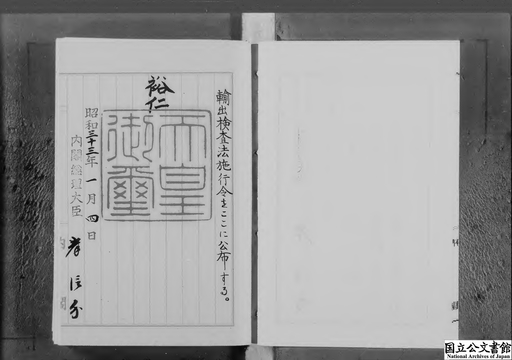 輸出検査法施行令をここに公布する。
裕仁
天皇
御璽
昭和三十三年一月四日
内閣総理大臣
岸信介
国立公文書館
National Archives of Japan